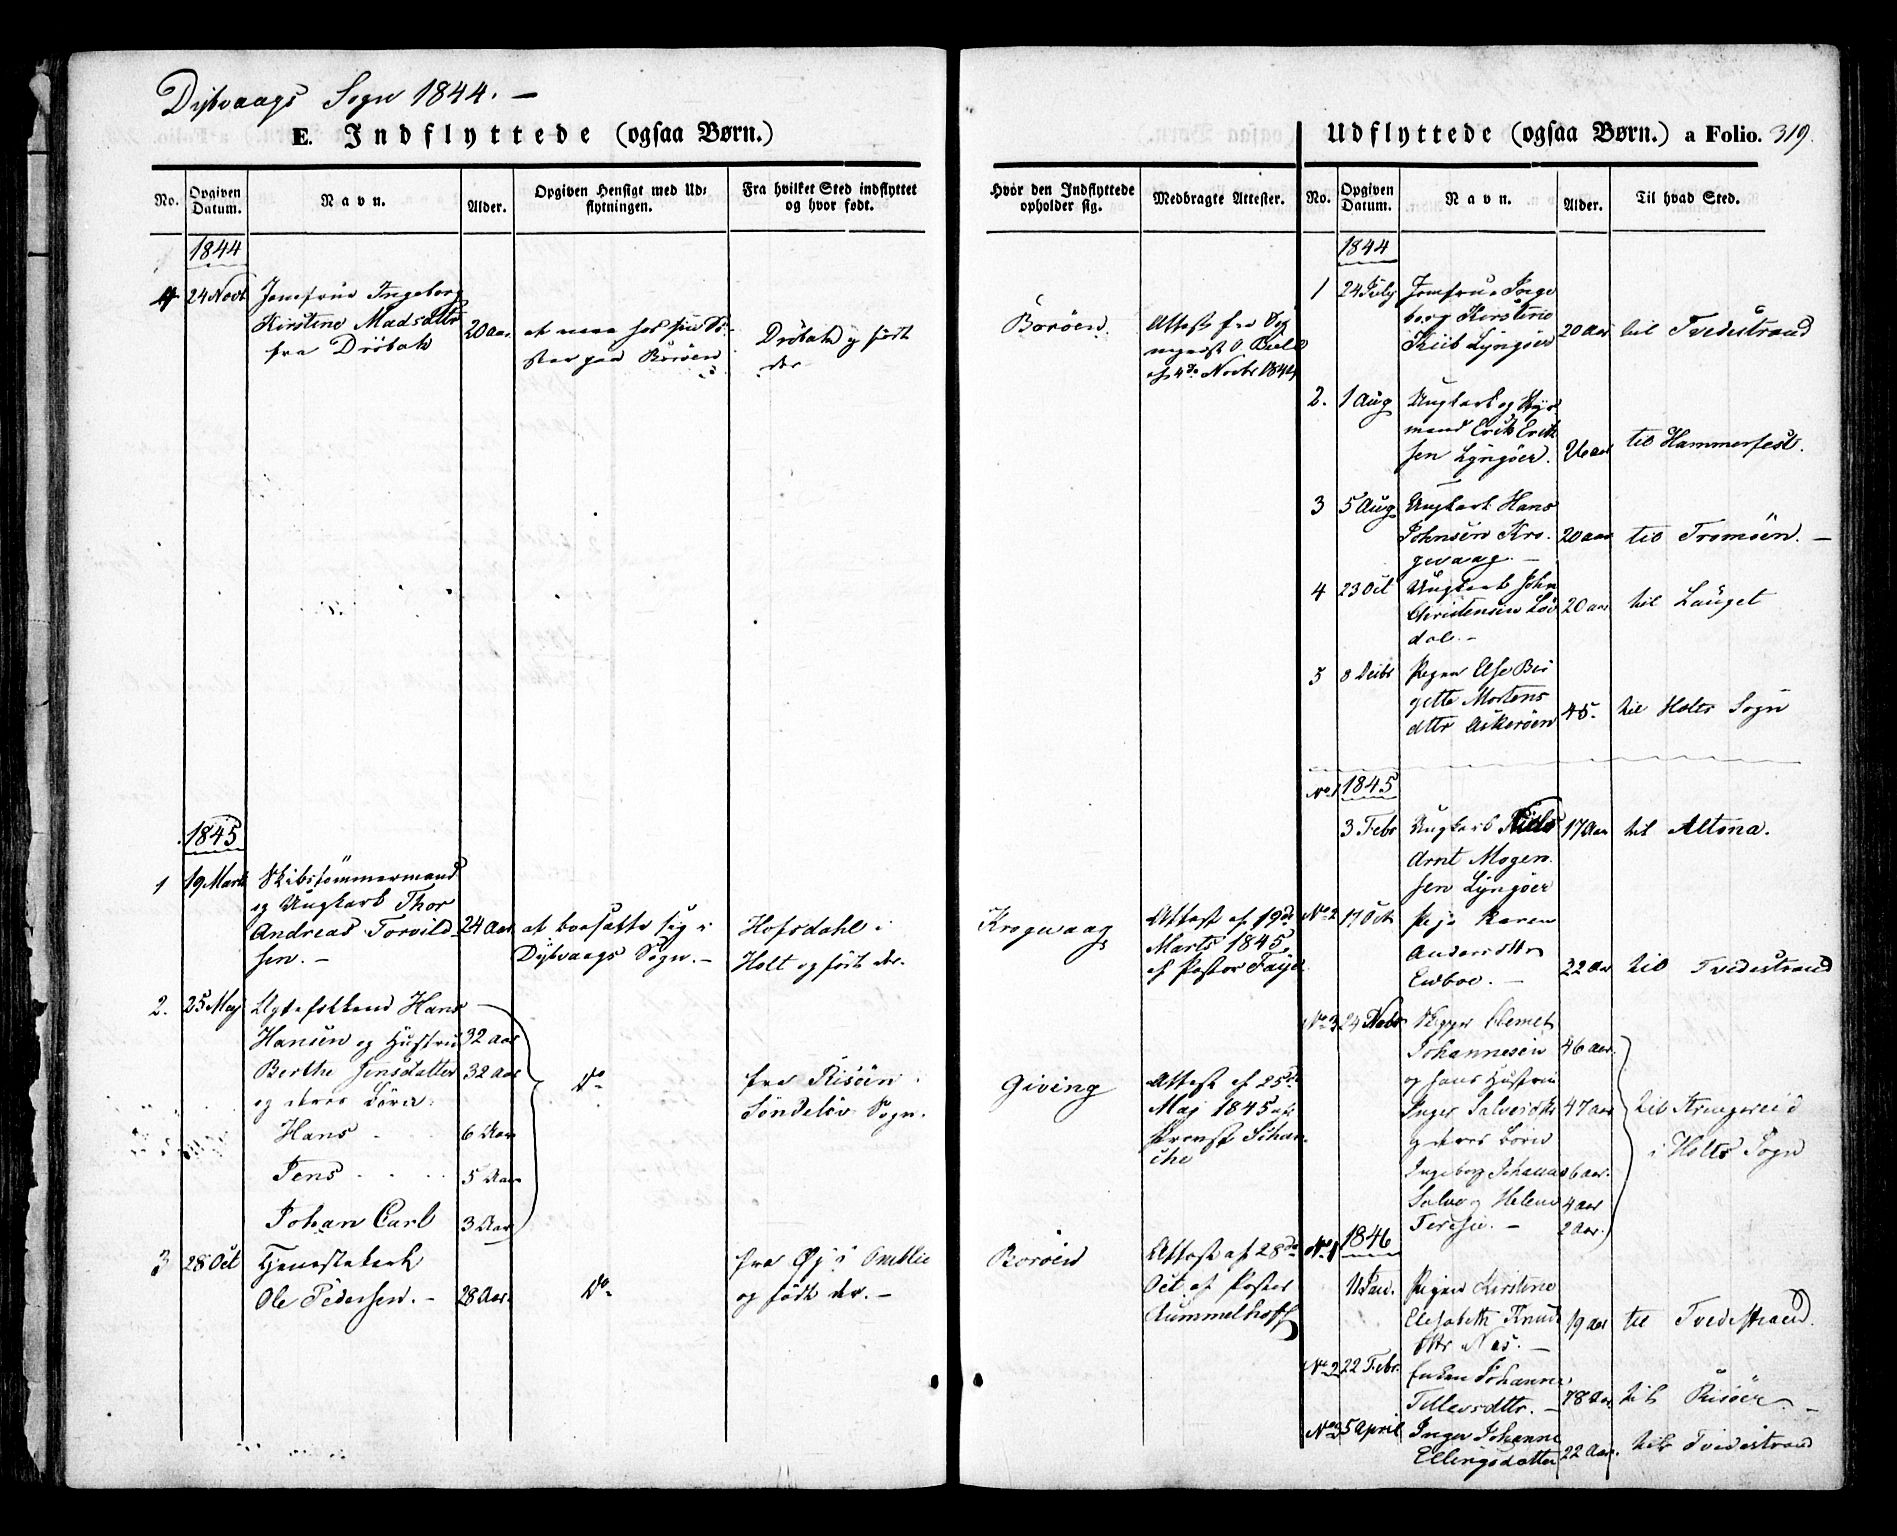 Dybvaags Sogn 1844. –
E. Indflyttede (ogsaa Børn.)
No.
Opgiven Datum.
Navn.
Alder.
Opgiven Hensigt med Ud-
flytningen.
Fra hvilket Sted indflyttet
og hvor født.
1844
4 24 Novb Jomfrue Ingeborg
Kirstine Madsdatter 20 Aar at være hos sin Sø- Dröbak og født
fra Dröbak ster paa Boröen der
1845
1 19 Marts Skibstömmermand
og Ungkarl Thor
Andreas Torvild- 24 Aar at bosætte sig i Hofsdahl i
sen. – Dybvaags Sogn. – Holt og født der.
2. 25 Maj Hans
Hansen og Hustrue 32 Aar
Berthe Jensdatter 32 Aar Do fra Risöen
og deres Börn Söndeløv Sogn.
Hans 6 Aar
Jens 5 Aar
Johan Carl 3 Aar
3 28 Oct Tjenestekarl fra Øj i Omblie
Ole Pedersen. – 28 Aar. Do og födt der. –
Udflyttede (ogsaa Børn.) a Folio. 319.
Hvor den Indflyttede
opholder sig.
Medbragte Attester.
No.
Opgiven Datum.
Navn.
Alder.
Til hvad Sted.
Boröen Attest fra Sog
nepræst O. Bull
af 4de Novbr 1844
Krogvaag Attest af 19de
Marts 1845
af Pastor Faye
Giving Attest af 25de
Maj 1845 af
Provst Schan
che
Boröen Attest af 28de
Oct. af Pastor
Rummelhoff
1844
1 24 July Jomfrue Inge
borg Kirstine 20 Aar til Tvedestrand
Lyngöer
2. 1 Aug Ungkarl og Styr
mand Erik Erik 26 Aar til Hammerfest.
sen Lyngöer.
3 5 Aug Ungkarl Hans
Johnsen Kro- 20 Aar til Tromöen. –
gevaag. –
4 23 Oct Ungkarl John
Christensen Löv 20 Aar til Lauget
dal. –
5 8 Decbr Pigen Else Bir
gitte Mortens
dttr Askeröen 45. til Holts Sogn
No 1 1845
3 Febr Ungkarl Niels 17 Aar til Altona.
Arnt Mogen-
sen Lyngöer
No 2 17 Oct Pige Karen
Andersdttr 22 Aar til Tvedestrand
No 3 24 Novbr
Johannesen 46 Aar.
og hans Hustrue
Inger Salvesdttr 47 Aar til
og deres Börn i Holts Sogn
Ingeborg Johanne 6 Aar.
Salve og Helene 4 Aar
Terese. – 2 Aar.
No 1 1846
11 Jan. Pigen Kirstine
Elisabeth Knuds 19 Aar til Tvedestrand.
dttr Næs. –
No 2 22 Febr. Enken Johanne
Tellevsdttr. – 78 Aar til Risöer –
No 3 5 April Inger Johanne
Ellingsdatter 22 Aar. til Tvedestrand